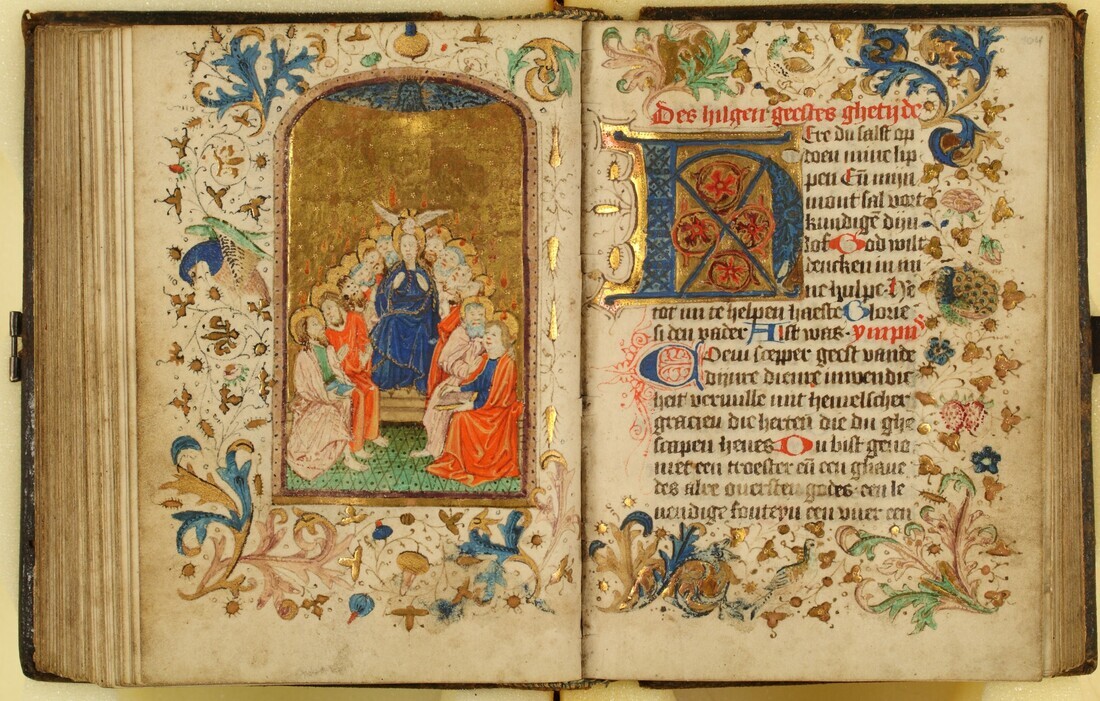 Des hilgen geestes ghetijde
Ere du salst op
doen mine lip
pen Eñ mijn
mont sal vort
kundigē dijn
lof God wilt
dencken in mi
ne hulpe He
tot mi te helpen haeste Glorie
si den vader Alst was
Com scepper geest vande
dijnre dienre inwendic
heit vervulle mit hemelscher
gracien die herten die du ghe
scapen heves Du bist gena
met een troester eñ een ghave
des alre oversten godes een le
vendige fonteyn een vuer een